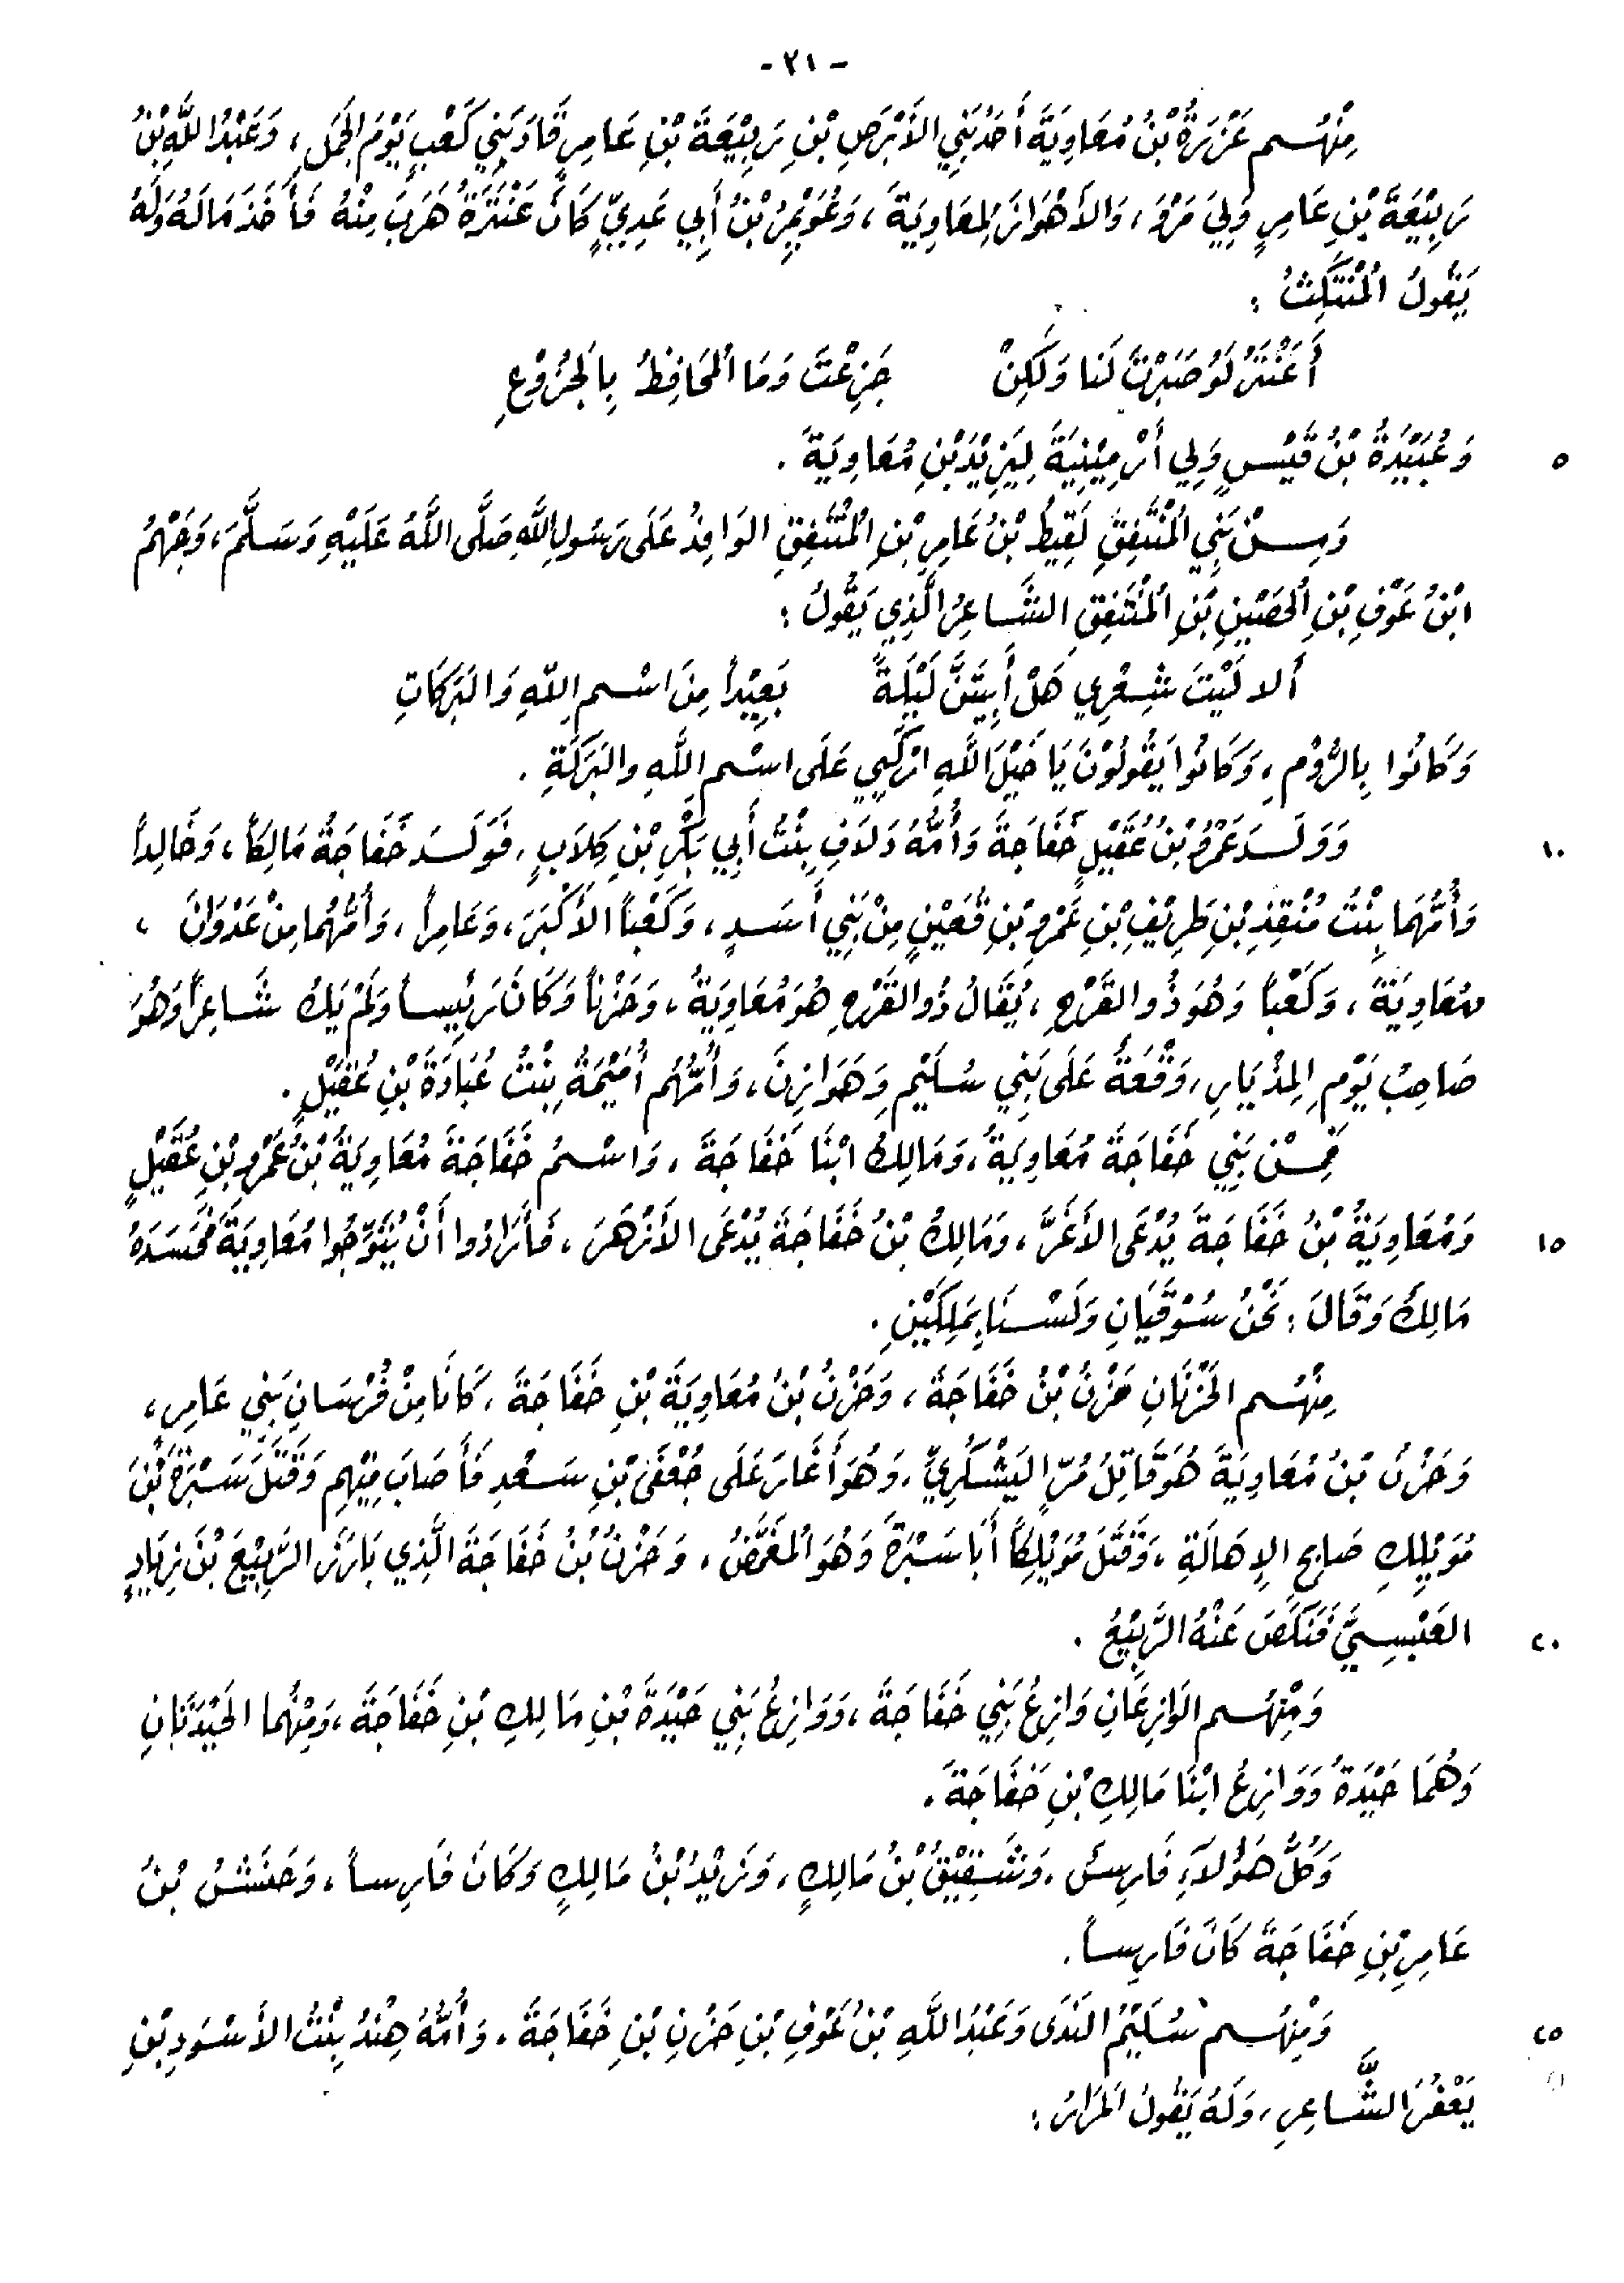 - ٣١ -
مِنْهُم عَزْرَةُ بْنُ مُعَاوِيَةَ أَحَدُ بَنِي الأَبْرَصِ بْنِ رَبِيْعَةَ بْنِ عَامِرٍ قَادَ بَنِي كَعْبٍ يَوْمَ الجَمَلِ، وَعَبْدُ اللَّهِ بْنُ
رَبِيْعَةَ بْنِ عَامِرٍ وَلِيَ مَرْوَ، وَالأَهْوَازَ لِمعَاوِيَةَ، وَعُوَيْمِرُ بْنُ أَبِي عَدِيّ كَانَ عَنْتَرَةُ هَرَبَ مِنْهُ فَأَخَذَ مَالَهُ وَلَهُ
يَقُولُ المُنْتَكِثُ :
أَعَنْتَرُ لَوْ صَبَرْتَ لَنَا وَلَكِنْ جَزِعْتَ وَمَا المُحَافِظُ بِالجَزُوْعِ
٥ وَعُبَيْدَةُ بْنُ قَيْسٍ وَلِي أَرْمِيْنِيَةَ لِيَزِيْدَ بْنِ مُعَاوِيَةَ .
وَمِنْ بَنِي المُنْتَفِقِ لَقِيْطُ بْنُ عَامِرِ بْنِ المُنْتَفِقِ الوَافِدُ عَلَى رَسُولِ اللَّهِ صَلَّى اللَّهُ عَلَيْهِ وَسَلَّمَ، وَجَهْمُ
ابْنُ عَوْفِ بْنِ الحُصَيْنِ بْنِ المُنْتَفِقِ الشَّاعِرُ الَّذِي يَقُولُ :
أَلا لَيْتَ شِعْرِي هَلْ أَبِيْتَنَّ لَيْلَةً بَعِيْداً مِنَ اسْمِ اللَّهِ وَالبَرَكَاتِ
وَكَانُوا بِالرُّوْمِ، وَكَانُوا يَقُولُوْنَ يَا خَيْلَ اللَّهِ ارْكَبِي عَلَى اسْمِ اللَّهِ والبَرَكَةِ .
١٠ وَوَلَدَ عَمْرُو بْنُ عُقَيْلٍ خَفَاجَةَ وَأُمُّهُ دَلَافِ بِنْتُ أَبِي بَكْرِ بْنِ كِلَابٍ، فَوَلَدَ خَفَاجَةُ مَالِكاً، وَخَالِداً
وَأُمُّهَما بِنْتُ مُنْقِذِ بْنِ طَرِيْفِ بْنِ عَمْرِو بْنِ قُعَيْنٍ مِنْ بَنِي أَسَدٍ، وَكَعْباً الأَكْبَرَ، وَعَامِراً، وَأُمُّهُما مِنْ عَدْوَانَ ،
مُعَاوِيَةَ، وَكَعْباً وَهُوَ ذُو القَرْحِ، يُقَالُ ذُو القَرْحِ هُوَ مُعَاوِيَةُ، وَحَزْناً وَكَانَ رَئِيساً وَلَمْ يَكُ شَاعِراً وَهُوَ
صَاحِبُ يَوْمِ المِذْيَارِ، وَقْعَةٌ عَلَى بَنِي سُلَيْمٍ وَهَوَازِنَ، وَأُمُّهُم أُمَيْمَةُ بِنْتُ عُبَادَةَ بْنِ عُقَيْلٍ .
فَمِنْ بَنِي خَفَاجَةَ مُعَاوِيَةُ، وَمَالِكُ ابْنَا خَفَاجَةَ، وَاسْمُ خَفَاجَةَ مُعَاوِيَةُ بْنُ عَمْرِو بْنِ عُقَيْلٍ
١٥ وَمُعَاوِيَةُ بْنُ خَفَاجَةَ يُدْعَى الأَغَرَّ، وَمَالِكُ بْنُ خَفَاجَةَ يُدْعَى الأَزْهَرَ، فَأَرَادُوا أَنْ يُتَوِّجُوا مُعَاوِيَةَ فَحَسَدَهُ
مَالِكُ وَقَالَ : نَحْنُ سُوْقَيَانِ وَلَسْنَا بِمَلِكَيْنِ .
مِنْهُم الحَزْنَانِ حَزْنُ بْنُ خَفَاجَةَ، وَحَزْنُ بْنُ مُعَاوِيَةَ بْنِ خَفَاجَةَ، كَانَا مِنْ فُرْسَانِ بَنِي عَامِرٍ،
وَحَزْنُ بْنُ مُعَاوِيَةَ هُوَ قَاتِلُ مُرّ اليَشْكُرِيِّ، وَهُوَ أَغَارَ عَلَى جُعْفَى بْنِ سَعْدٍ فَأَصَابَ مِنْهِم وَقَتَلَ سَبْرَةَ بْنَ
مُوَيْلِكِ صَابِحِ الإِهَالَةِ، وَقَتَلَ مُوَيْلِكاً أَبَا سَبْرَةَ وَهُوَ المُغَمَّضُ، وَحَزْنُ بْنُ خَفَاجَةَ الَّذِي بَارَزَ الرَّبِيْعَ بْنَ زِيَادٍ
٢٠ العَبْسِيَّ فَنَكَصَ عَنْهُ الرَّبِيْعُ .
وَمِنْهُم الوَازِعَانِ وَازِعُ بَنِي خَفَاجَةَ، وَوَازِعُ بَنِي حَيْدَةَ بْنِ مَالِكِ بْنِ خَفَاجَةَ، وَمِنْهُما الحَيْدَتَانِ
وَهُمَا حَيْدَةُ وَوَازِعُ ابْنَا مَالِكِ بْنِ خَفَاجَةَ .
وَكُلُّ هَؤُلَاءِ فَارِسٌ، وَشَقِيْقُ بْنُ مَالِكٍ، وَزَيْدُ بْنُ مَالِكٍ وَكَانَ فَارِساً، وَحَنَشُ بْنُ
عَامِرِ بْنِ خَفَاجَةَ كَانَ فَارِساً .
٢٥ وَمِنْهُم سُلَيْمُ النَدَى وَعَبْدُ اللَّهِ بْنُ عَوْفِ بْنِ حَزْنِ بْنِ خَفَاجَةَ، وَأُمُّهُ هِنْدُ بِنْتُ الأَسْوَدِ بْنِ
يَعْفُرَ الشَّاعِرِ، وَلَهُ يَقُولُ المَرَارُ :